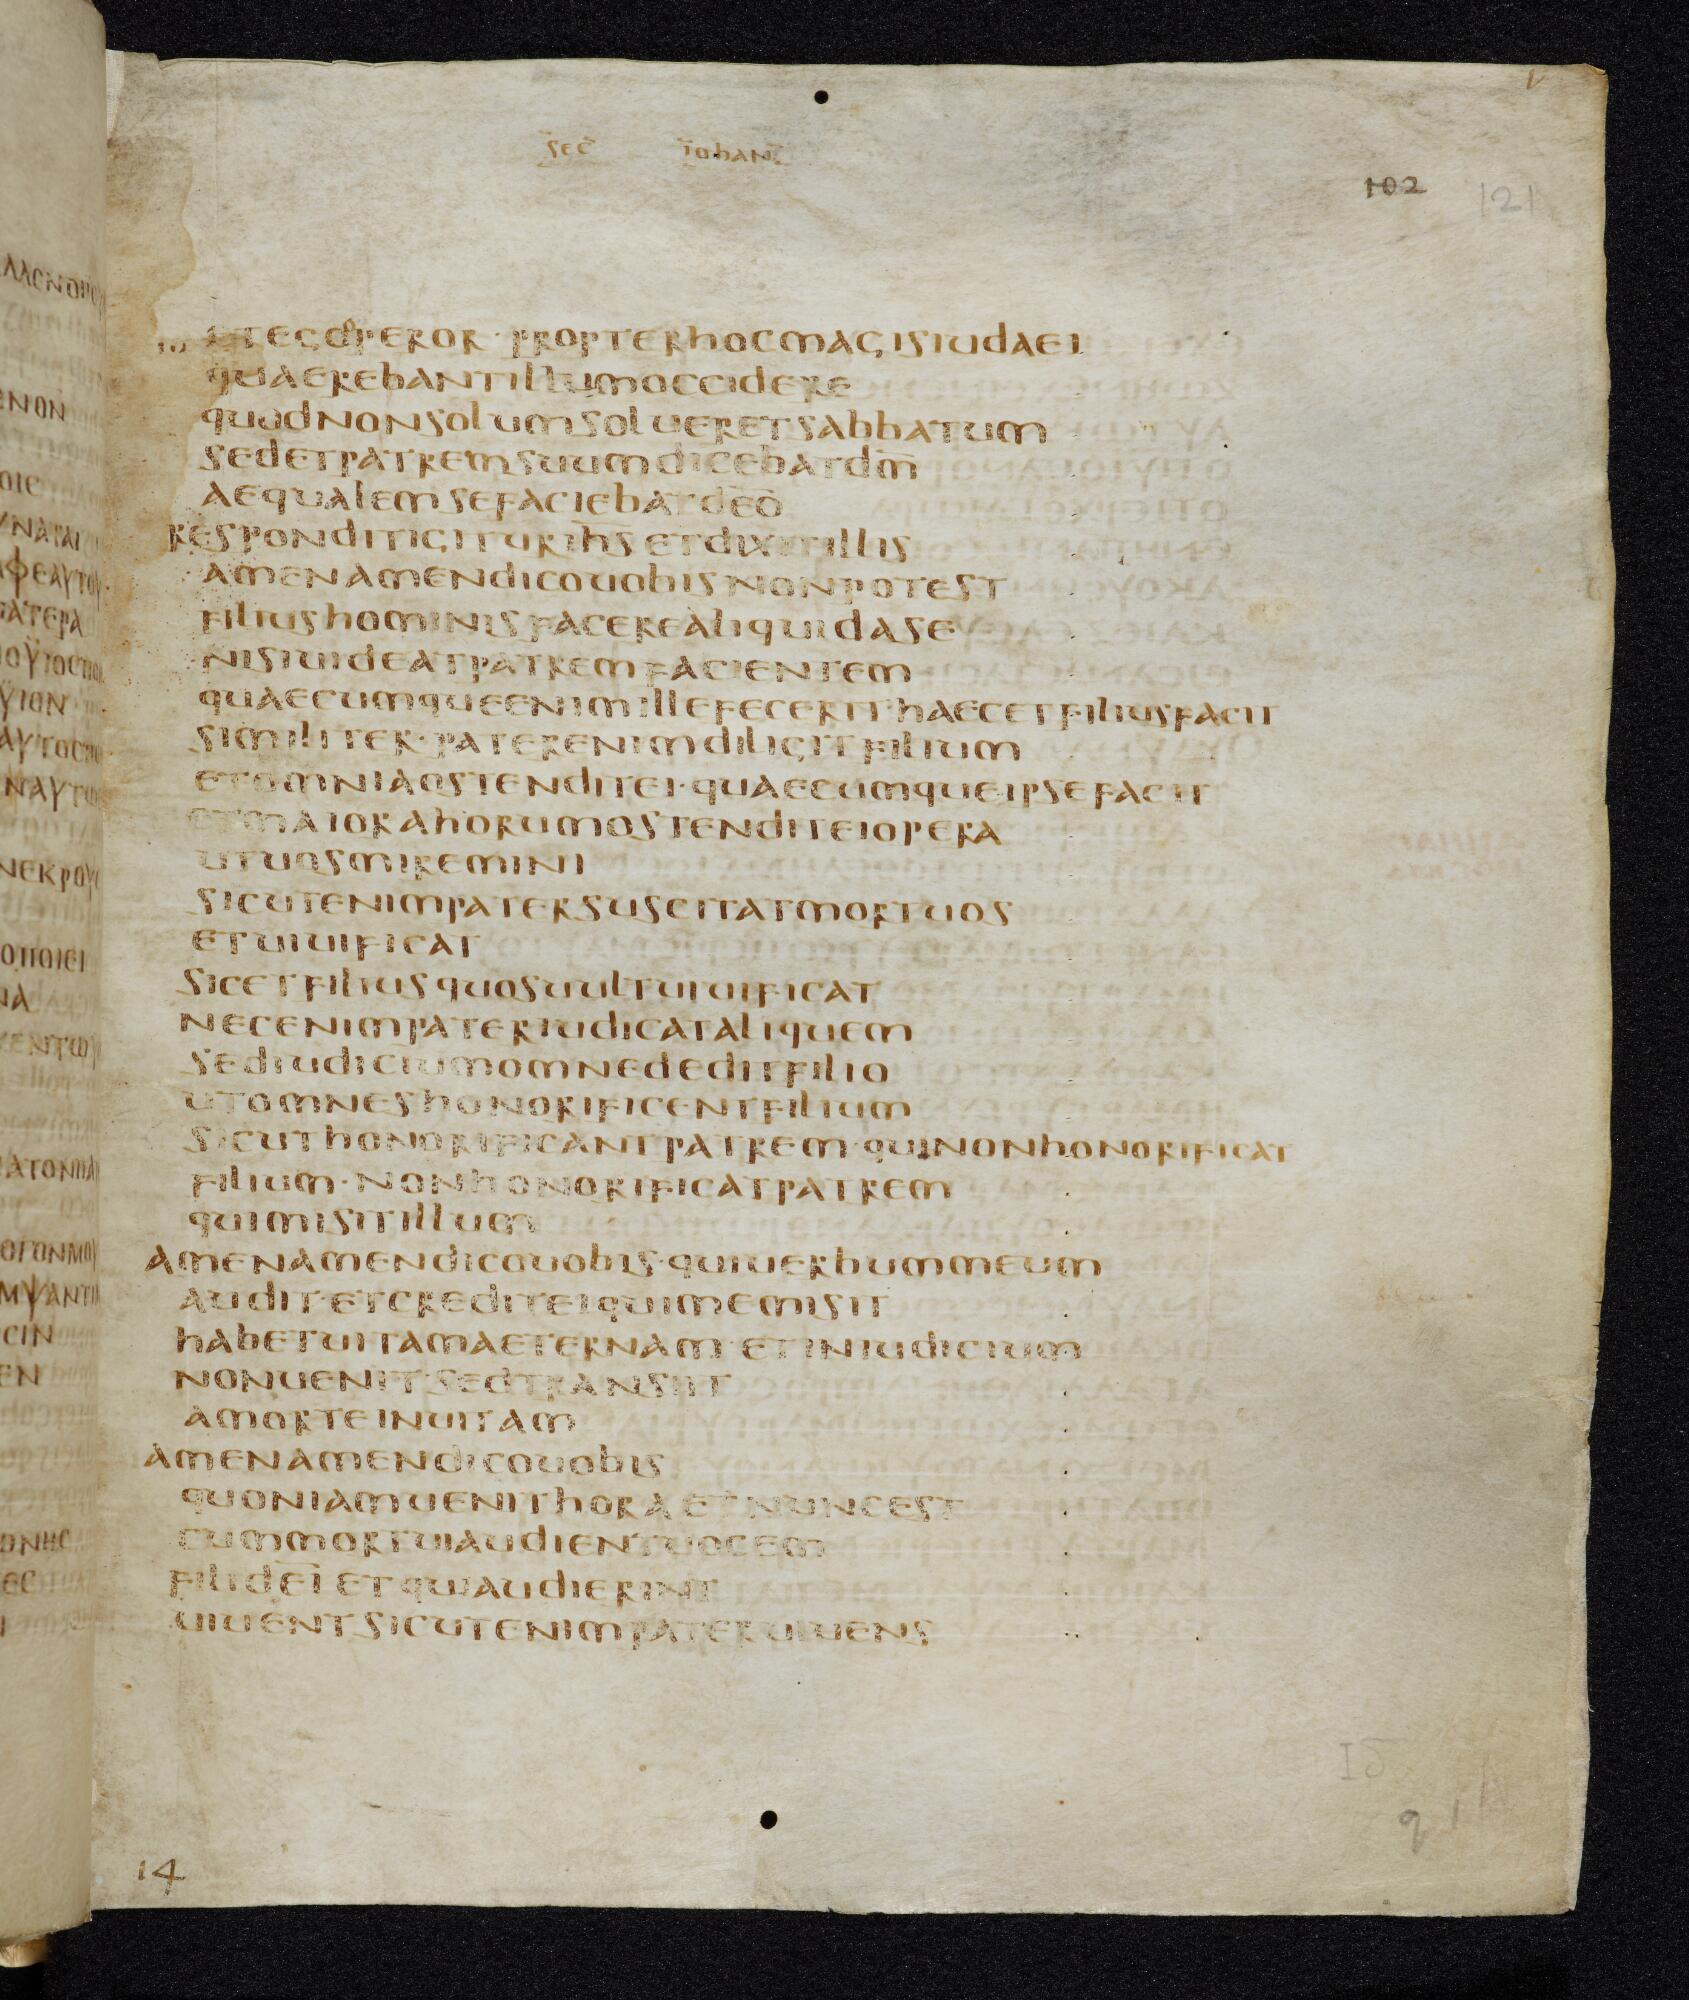 sec iohan
102 121
et ego operor · propter hoc magis iudaei
quaerebant illum occidere
quod non solum solueret sabbatum
sed et patrem suum dicebat dm̅
aequalem se faciebat deo
respondit igitur ih̅s̅ et dixit illis
amen amen dico uobis non potest
filius hominis facere aliquid a se
nisi uideat patrem facientem
quaecumque enim ille fecerit · haec et filius facit
similiter · pater enim diligit filium
et omnia ostendit ei · quaecumque ipse facit
et maiora horum ostendit ei opera
ut uos miremini
sicut enim pater suscitat mortuos
et uiuificat
sic et filius quos uult uiuificat
nec enim pater iudicat aliquem
sed iudicium omne dedit filio
ut omnes honorificent filium
sicut honorificant patrem · qui non honorificat
filium · non honorificat patrem
qui misit illum
amen amen dico uobis · qui uerbum meum
audit · et credit ei qui me misit
habet uitam aeternam · et in iudicium
non uenit · sed transiit
a morte in uitam
amen amen dico uobis
quoniam uenit hora et nunc est
cum mortui audient uocem
fili dei et qui audierint
uiuent sicut enim pater uiuens
14